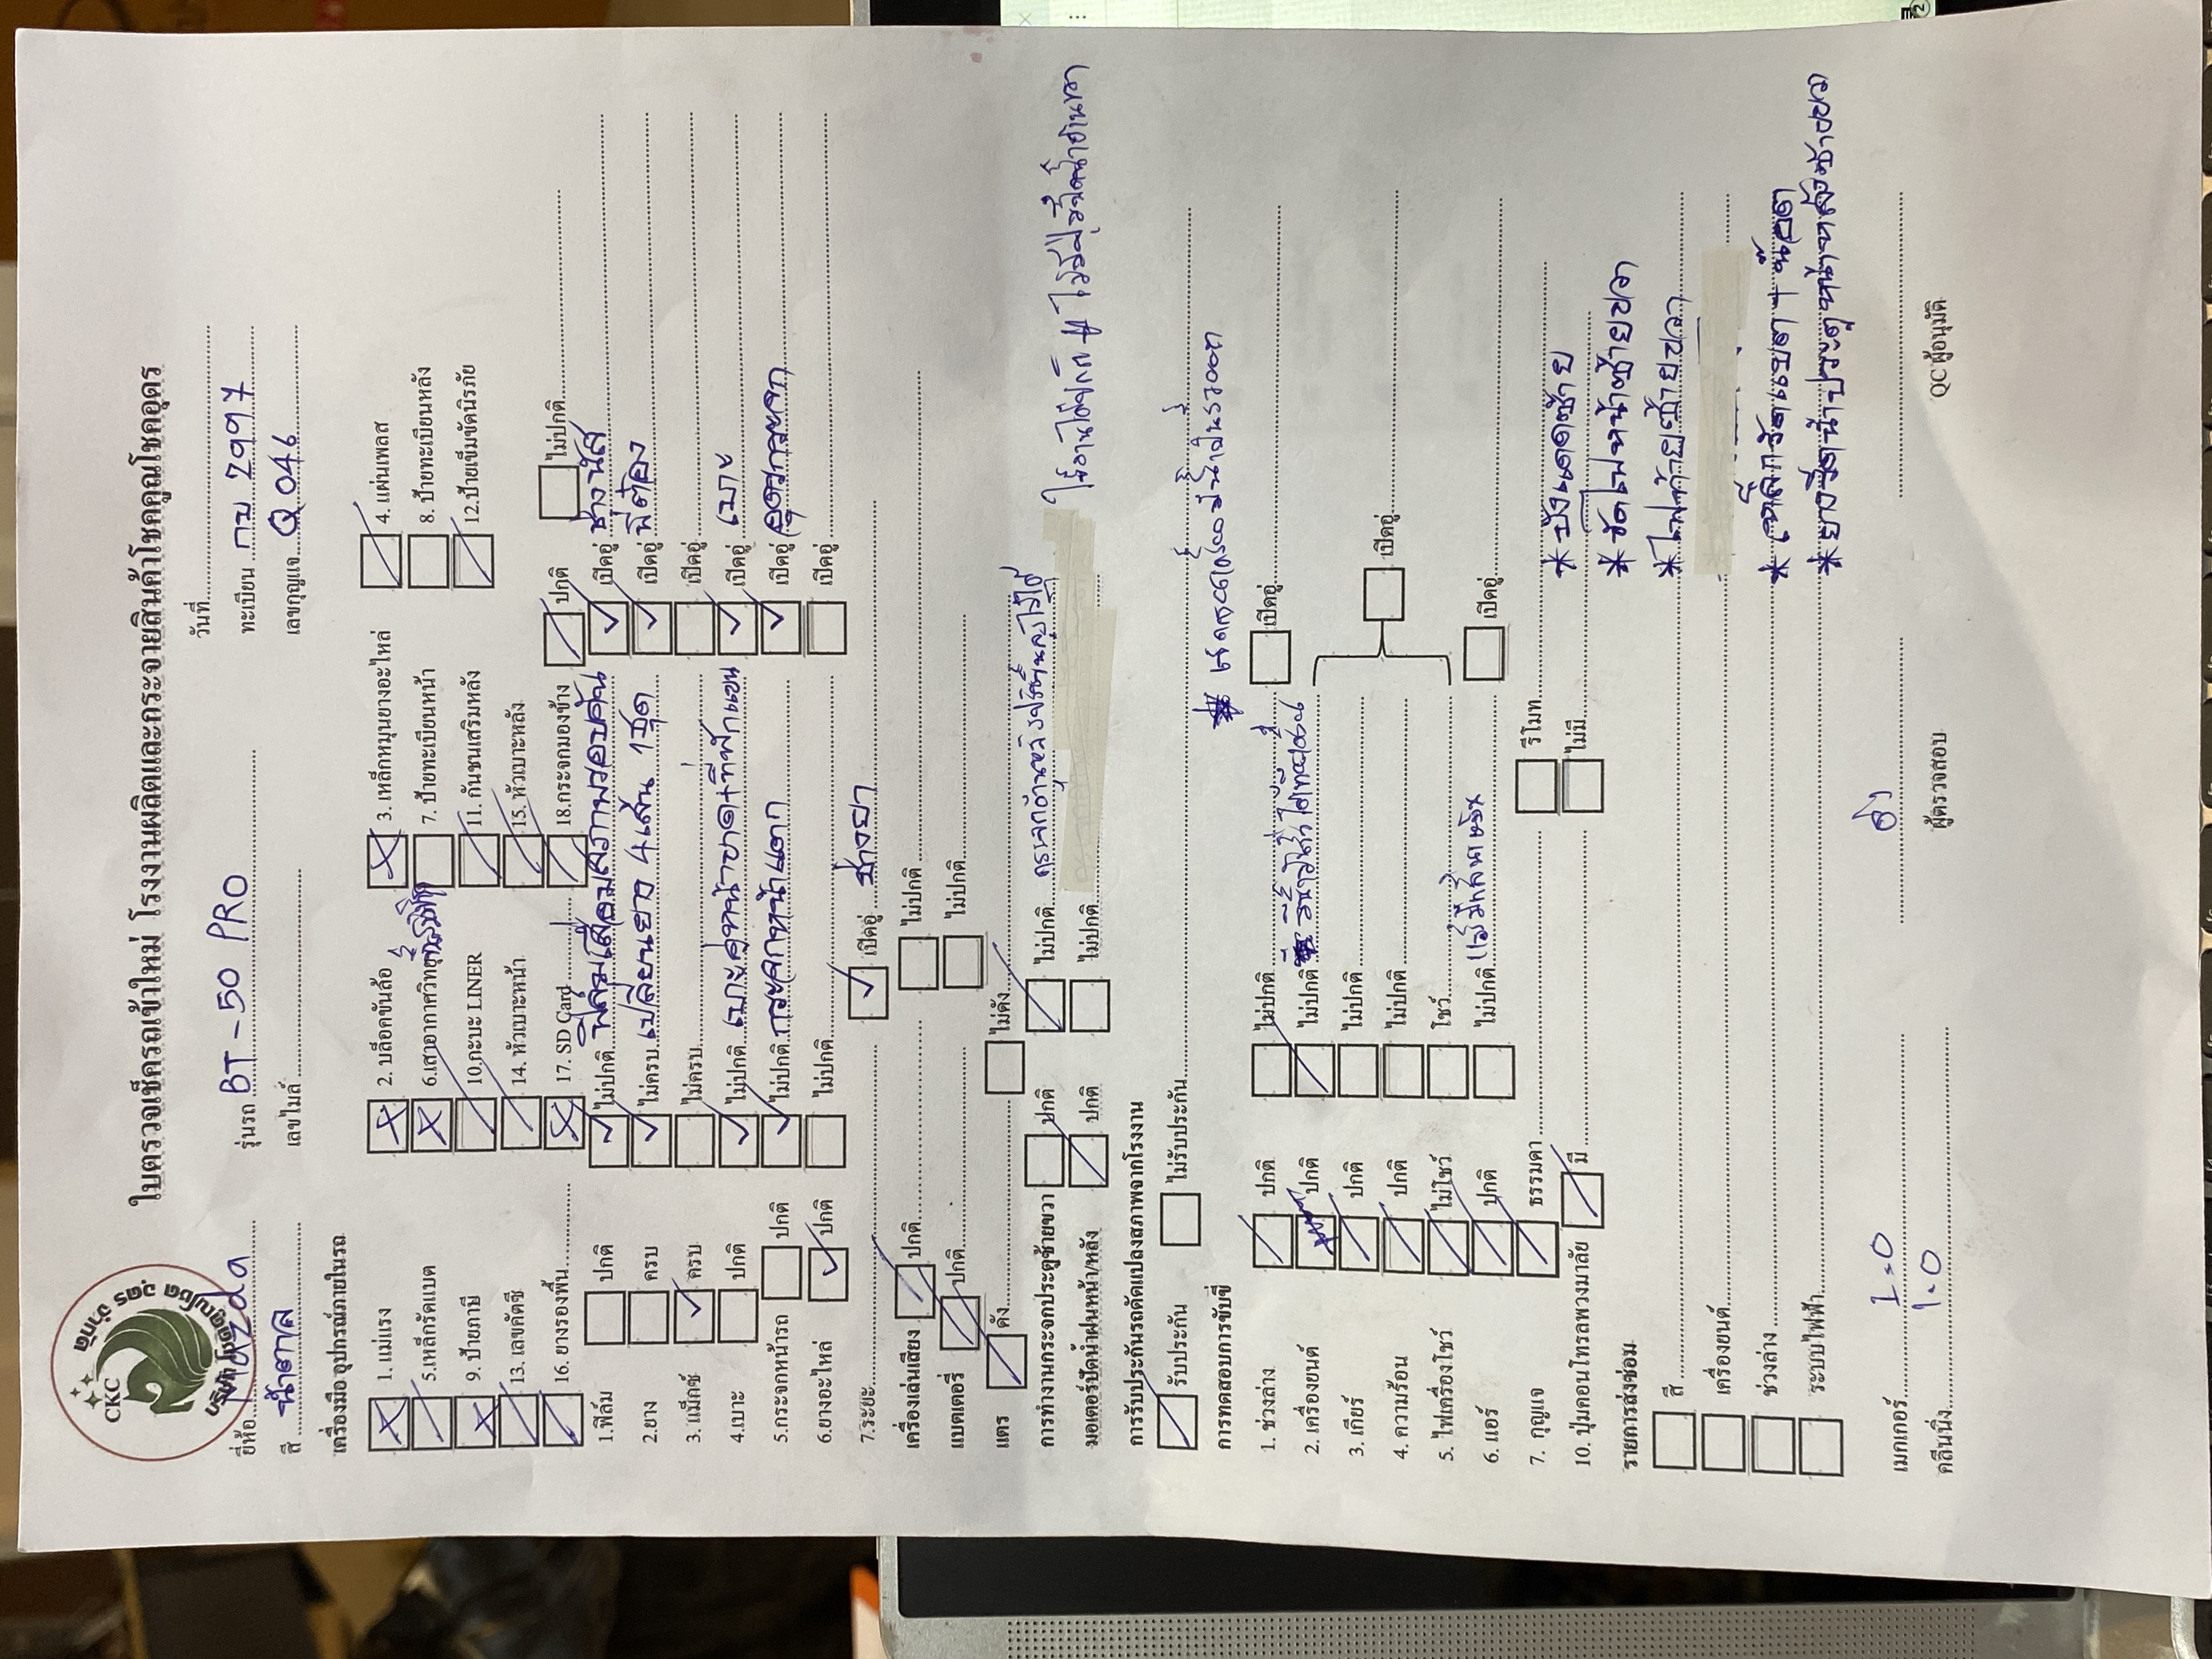 CKC
ใบตรวจเช็ครถเข้าใหม่ โรงงานผลิตและกระจายสินค้าโชคคูณโชคอุดร
วันที่
ยี่ห้อ Mazda รุ่นรถ BT-50 PRO ทะเบียน กบ 2997
สี น้ำตาล เลขไมล์ เลขกุญแจ Q 046
เครื่องมือ อุปกรณ์ภายในรถ
1. แม่แรง 2. บล็อกขันล้อ 3. เหล็กหมุนยางอะไหล่ 4. แผ่นเพลส
5.เหล็กรัดแบต 6.เสาอากาศวิทยุ 7. ป้ายทะเบียนหน้า 8. ป้ายทะเบียนหลัง
9. ป้ายภาษี 10.กะบะ LINER 11. กันชนเสริมหลัง 12.ป้ายเข็มขัดนิรภัย
13. เลขคัตซี 14. หัวเบาะหน้า 15. หัวเบาะหลัง
16. ยางรองพื้น 17. SD Card 18.กระจกมองข้าง ปกติ ไม่ปกติ
1.ฟิล์ม ปกติ ไม่ปกติ ฟิล์มเสื่อมสภาพรอบคัน เปิดอู่ ช่างนัส
2.ยาง ครบ ไม่ครบ เปลี่ยนยาง 4 เส้น 1 ชุด เปิดอู่ พี่ต๋อง
3. แม็กซ์ ครบ ไม่ครบ เปิดอู่
4.เบาะ ปกติ ไม่ปกติ เบาะคู่หน้าขาด+ที่พักแขน เปิดอู่ เบาะ
5.กระจกหน้ารถ ปกติ ไม่ปกติ กระจกหน้าแตก เปิดอู่
6.ยางอะไหล่ ปกติ ไม่ปกติ เปิดอู่
7.ระยะ เปิดอู่ ช่างยา
เครื่องเล่นเสียง ปกติ ไม่ปกติ
แบตเตอรี่ ปกติ ไม่ปกติ
แตร ดัง ไม่ดัง
การทำงานกระจกประตูซ้ายขวา ปกติ ไม่ปกติ
มอเตอร์ปัดน้ำฝนหน้า/หลัง ปกติ ไม่ปกติ
การรับประกันรถดัดแปลงสภาพจากโรงงาน
รับประกัน ไม่รับประกัน
การทดสอบการขับขี่
1. ช่วงล่าง ปกติ ไม่ปกติ เปิดอู่
2. เครื่องยนต์ ปกติ ไม่ปกติ
3. เกียร์ ปกติ ไม่ปกติ
เปิดอู่
4. ความร้อน ปกติ ไม่ปกติ
5. ไฟเครื่องโชว์ ไม่โชว์ โชว์
6. แอร์ ปกติ ไม่ปกติ เปิดอู่
7. กุญแจ ธรรมดา รีโมท
10. ปุ่มคอนโทรลพวงมาลัย มี ไม่มี
* บังแดดซ้าย
* ขัดไฟหน้าซ้ายขวา
รายการส่งซ่อม
สี * ไฟท้ายซ้ายขวา
เครื่องยนต์
ช่วงล่าง * เหล็กรัดแบต + น็อต
ระบบไฟฟ้า * ยางรีดน้ำประตูหน้าหลังซ้ายขวา
เมกเกอร์ 1.0
คลีนนิ่ง 1.0
ผู้ตรวจสอบ
QC ผู้อนุมัติ